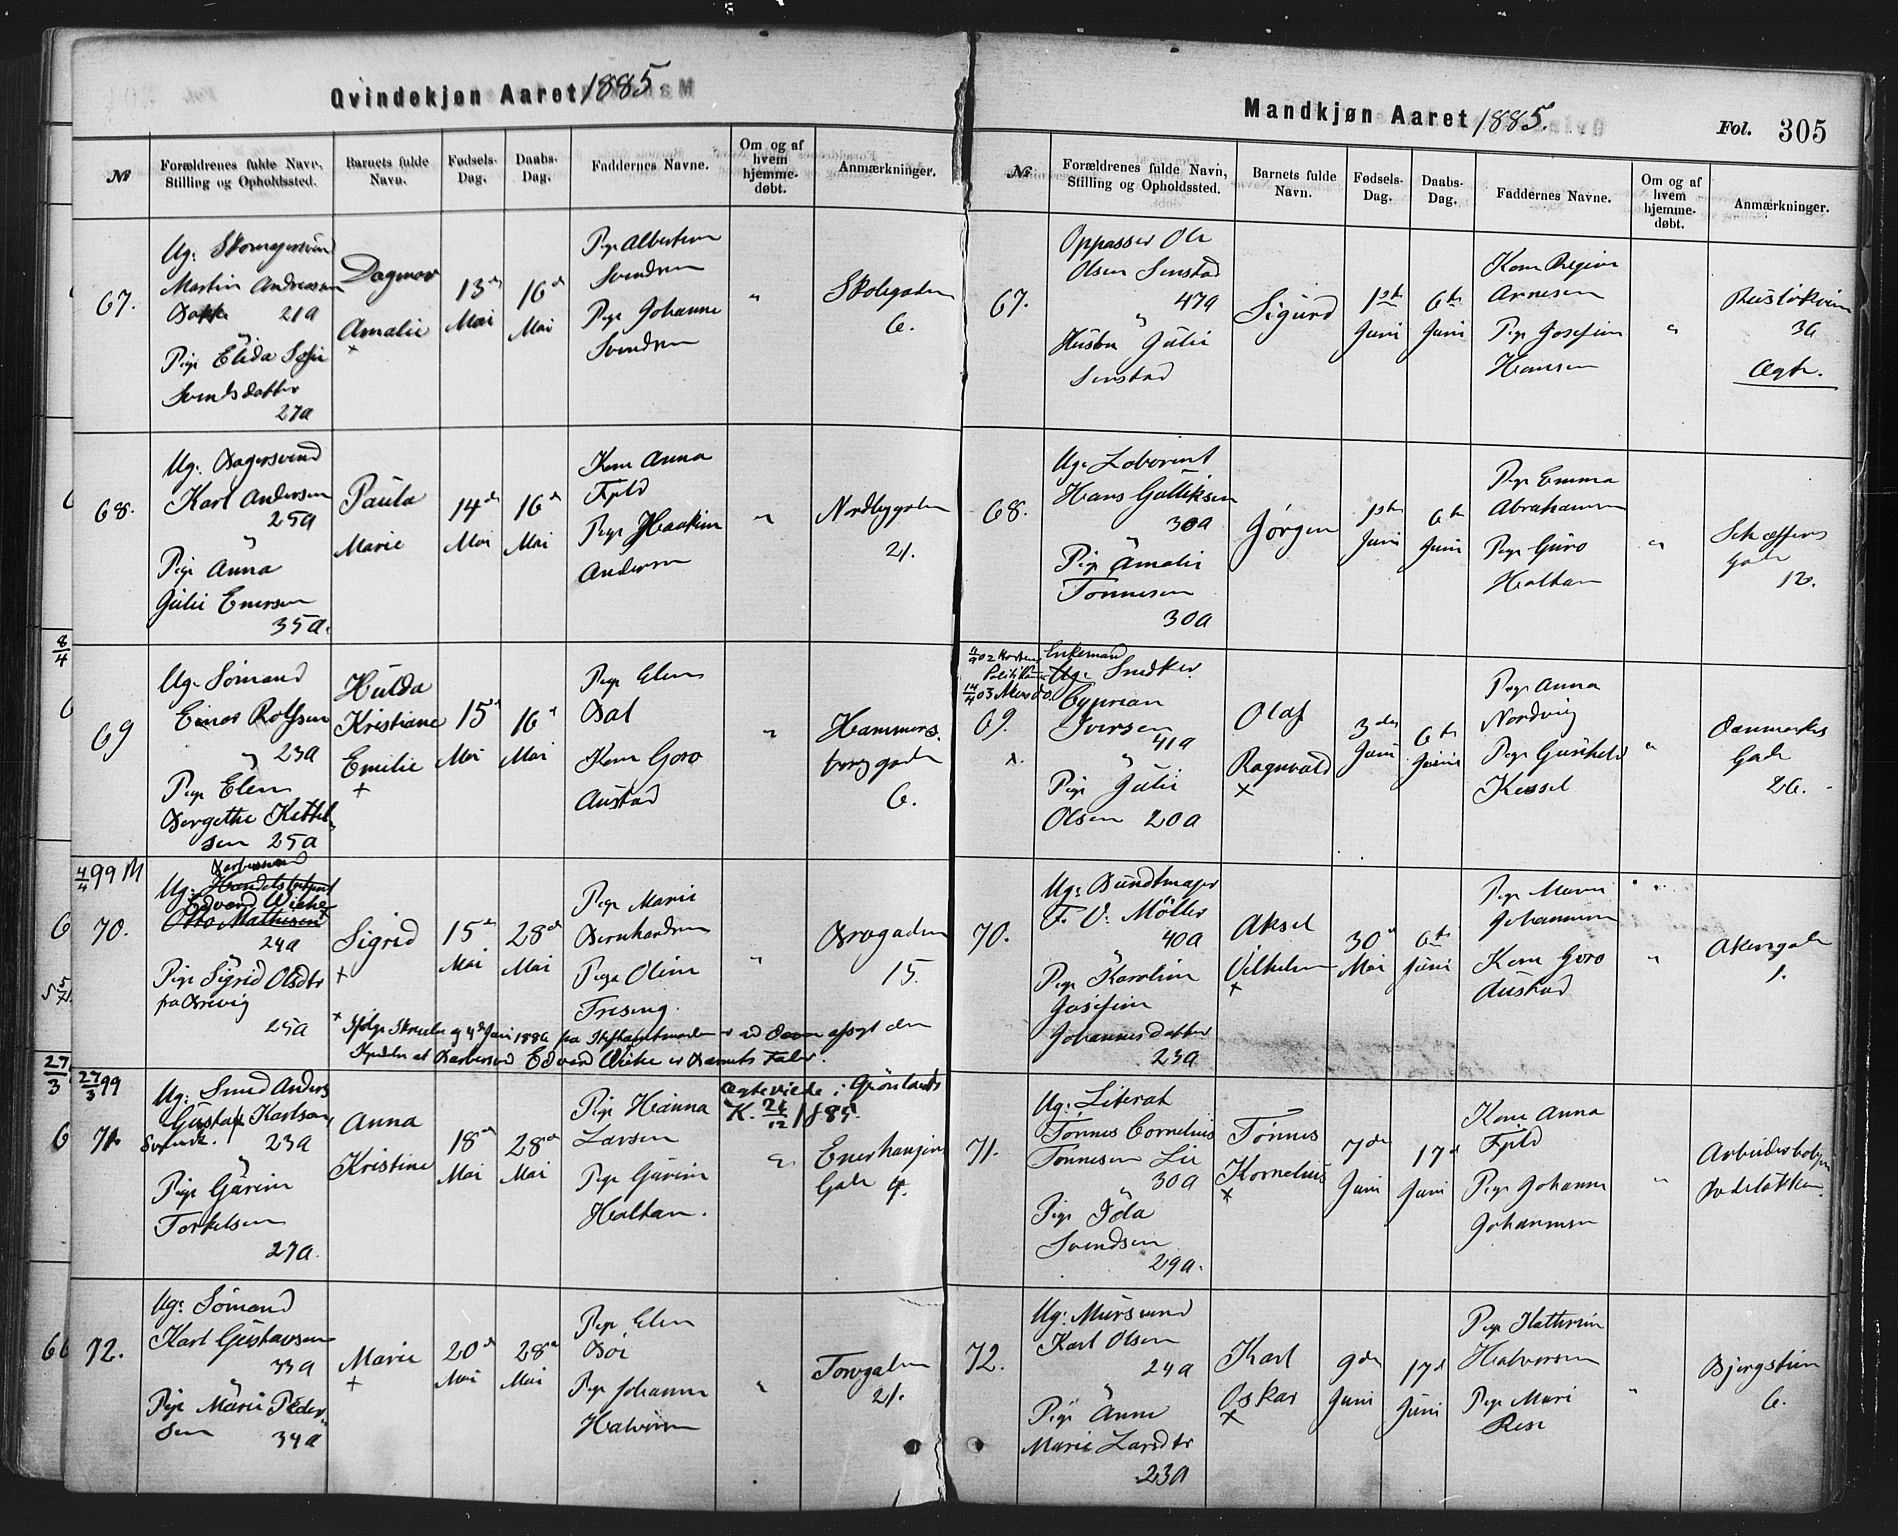 Qvindekjøn Aaret 1885
№
Forældrenes fulde Navn,
Stilling og Opholdssted.
Barnets fulde
Navn.
Fødsels-
Dag.
Daabs-
Dag.
Faddernes Navne.
Om og af
hvem
hjemme-
døbt.
Anmærkninger.
67.
Ug:
Martin Andreassen
21 a
"
Pige Elida Sofie
Svendsdatter
27a
Dagmar
Amalie
+
13de
Mai
16de
Mai
Pige Albertine
Svendsen
Pige Johanne
Svendsen
"
Skolegaden
6.
68.
Ug: Bagersvend
Karl Andersen
25a
"
Pige Anna
Julie Enersen
35a.
Paula
Marie
14de
Mai
16de
Mai
Kone Anna
Fjeld
Pige Haakine
Andersen
"
Nordbygaden
21.
69
Ug. Sømand
Einar Rolfsen
23a
"
Pige Elen
Bergethe Kettel-
sen 25a
Hulda
Kristiane
Emilie
+
15de
Mai
16de
Mai
Pige Elen
Dal
Kone Goro
Austad
"
Hammers-
borggaden
6.
4/4 99 M
70.
Barbersvend
Ug: Handelsbetjent
Edvard Wiche
Otto Mathisen
24a
"
Pige Sigrid Olsdtr
fra Brevig
25a
Sigrid
+
15de
Mai
28de
Mai
Pige Marie
Bernhardsen
Pige Oline
"
Brogaden
15.
+ Ifølge Skrivelse af 4de Juni 1886 fra Stiftamtmanden er ad
at Barbersvend Edvard Wiche er Barnets Fader.
27/3 99
71.
Ug: Smed Anders
Gustaf Karlson,
Svensk. 23a
"
Pige Gurine
Torkelsen
27a.
Anna
Kristine
18de
Mai
28de
Mai
Pige Hanna
Larsen
Pige Gurine
Holtan.
Ægteviede i Grønlands
K. 26/12 1885.
"
Enerhaugens
Gade 4.
72.
Ug: Sømand
Karl Gustavsen
33a
"
Pige Marie Peder-
sen 34a
Marie
+
20de
Mai
28de
Mai
Pige Elen
Bøe
Pige Johanne
Halvorsen
"
Torvgaden
21.
Mandkjøn Aaret 1885.
Fol. 305
№
Forældrenes fulde Navn,
Stilling og Opholdssted.
Barnets fulde
Navn.
Fødsels-
Dag.
Daabs-
Dag.
Faddernes Navne.
Om og af
hvem
hjemme-
døbt.
Anmærkninger.
67.
Oppasser Ole
Olsen Senstad
47a
"
Hustru Julie
Senstad
Sigurd
1ste
Juni
6te
Juni
Kone Regine
Arnesen
Pige Josefine
Hansen
"
Ruseløkvein
3a
Ægte.
68.
Ug: Laborant
Hans Gulliksen
30a
"
Pige Amalie
Tønnesen
30a
Jørgen
1ste
Juni
6te
Juni
Pige Emma
Abrahamsen
Pige Guro
Holtan
"
Schæffers
gade
12.
69.
Enkemand
Ug: Snedker
Cyprian
Iversen
41a
"
Pige Julie
Olsen 20a
Olaf
Ragnvald
+
3die
Juni
6te
Juni
Pige Anna
Nordvig
Pige Gunhild
Kessel
"
Danmarks
Gade
26.
70.
Ug: Bundtmager
F. V. Møller
40a
"
Pige Karoline
Josefine
Johannesdatter
23a
Aksel
Vilhelm
+
30de
Mai
6te
Juni
Pige Maren
Johannesen
Kone Goro
Austad
"
Akersgade
1.
71.
Ug: Literat
Tønnes Cornelius
Tønnesen Lie
30a
"
Pige Ida
Svendsen
29a.
Tønnes
Kornelius
+
7de
Juni
17de
Juni
Kone Anna
Fjeld
Pige Johanne
Johannesen
"
Arbeiderbolig
72.
Ug: Mursvend
Karl Olsen
24a
"
Pige Anne
Marie Larsdtr
23a
Karl
Oskar
+
9de
Juni
17de
Juni
Pige Kathrine
Halvorsen
Pige Mari
"
Bjergstien
6.